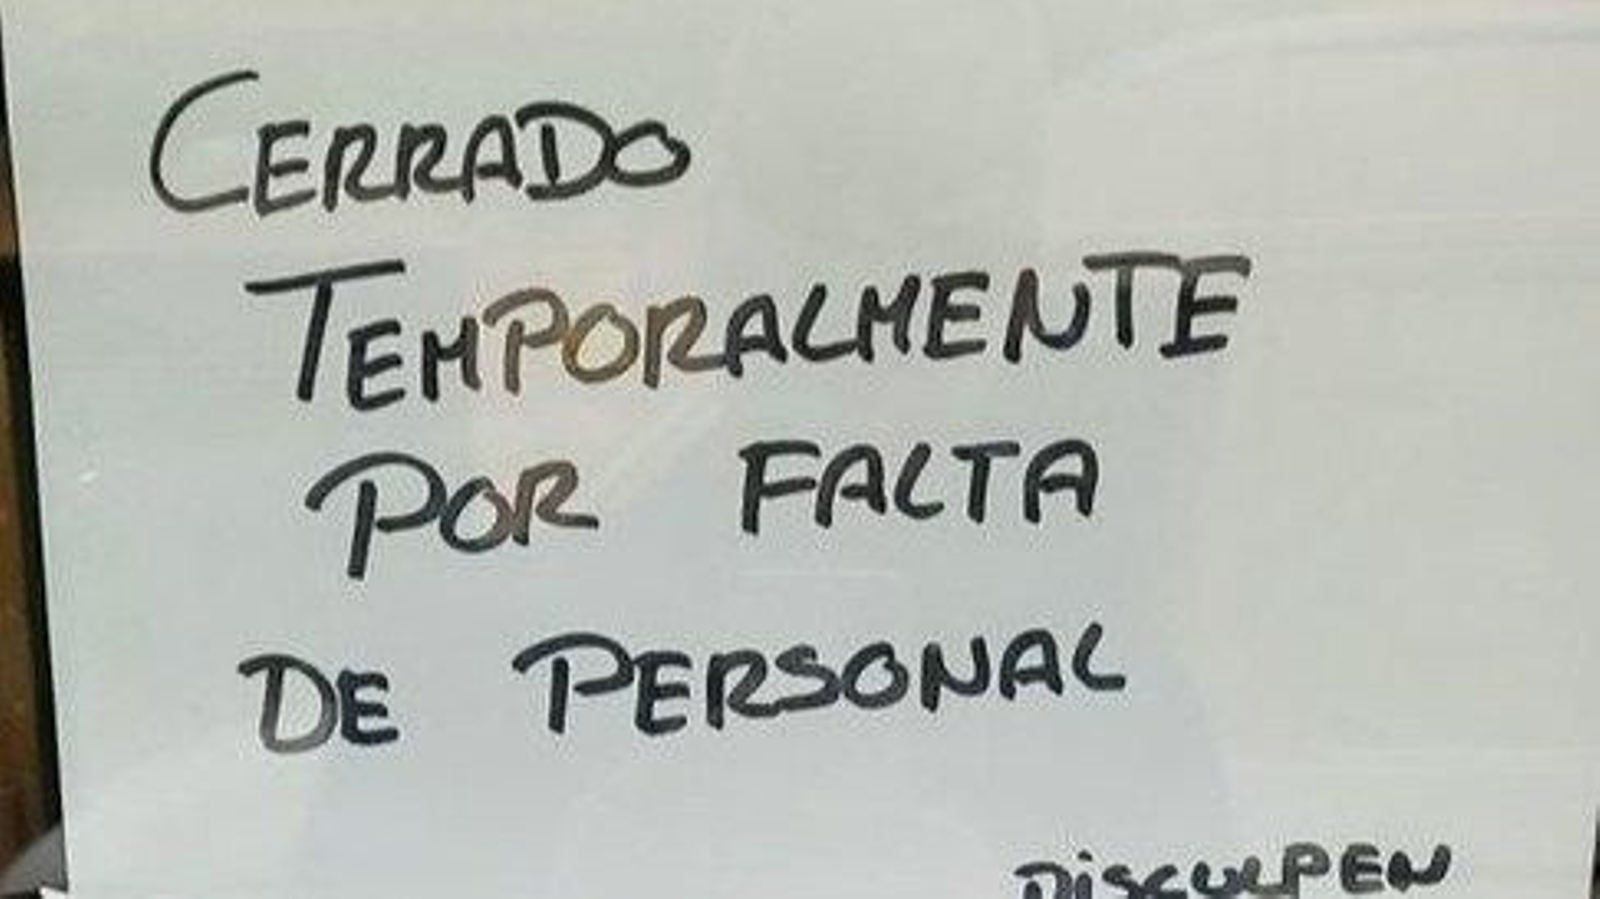 CERRADO
TEMPORALMENTE
POR FALTA
DE PERSONAL
DISCULPEN